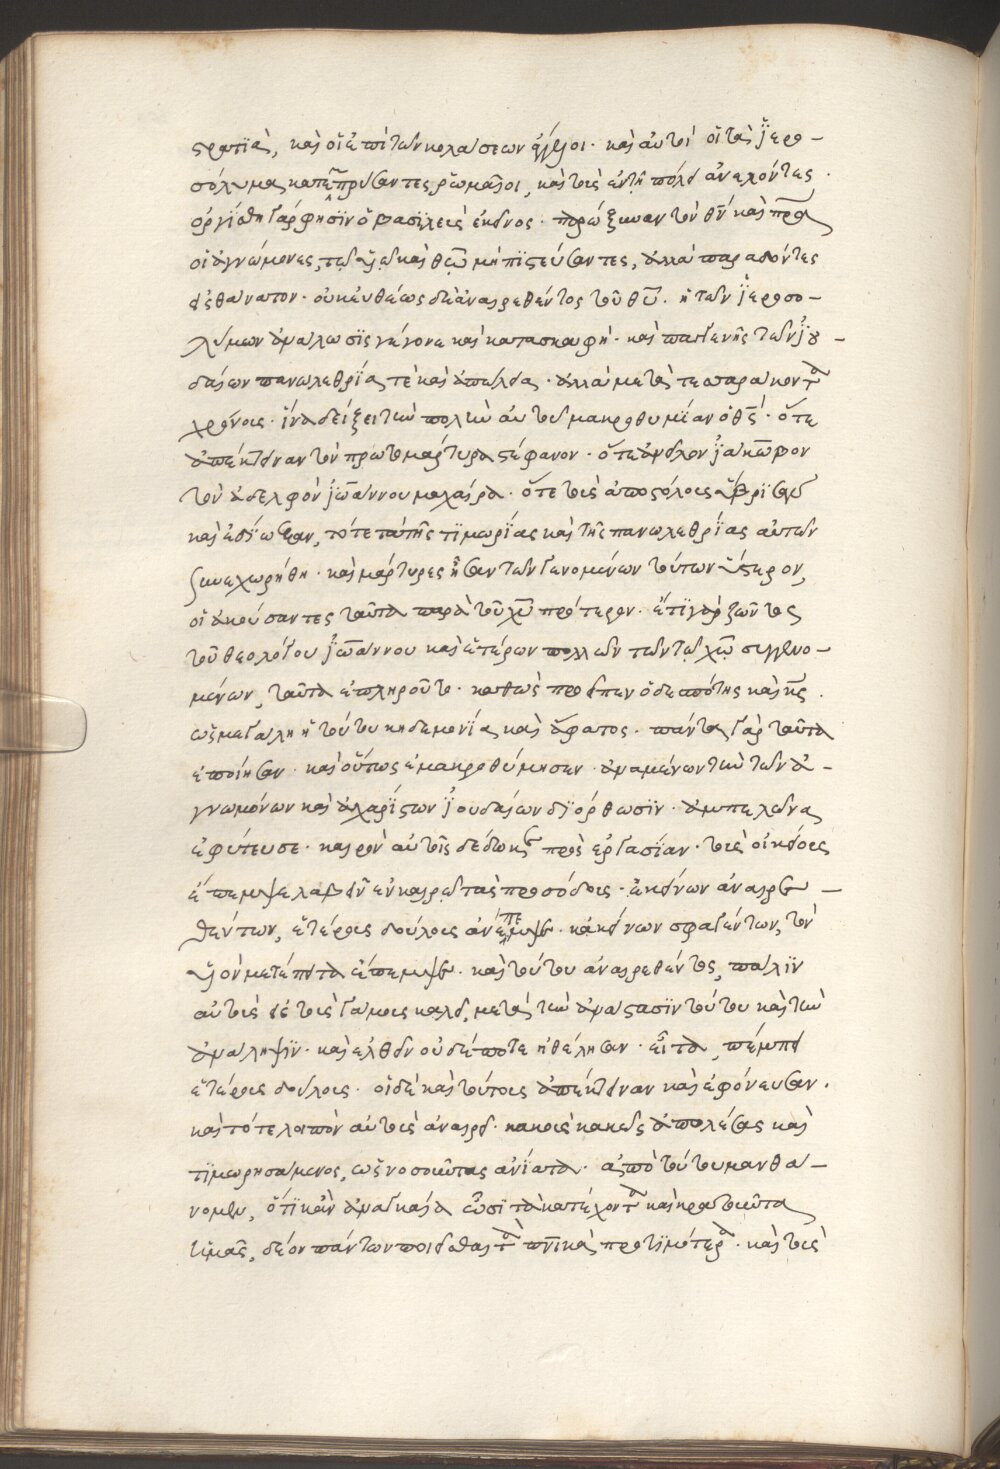 στρατιαὶ, καὶ οἱ ἐπὶ τῶν κολάσεων ἄγγελοι· καὶ αὐτοὶ οἱ τὰ ϊερο-
σόλυμα καταπρήσαντες ῥωμαῖοι, καὶ τοὺς ἐν τῇ πόλει ἀνελόντες.
ὀργίσθη γάρ φησϊν ὁ βασιλεὺς ἐκεῖνος· παρώξυναν τὸν θν καὶ πρα
οἱ ἀγνώμονες, τῷ υω καὶ θω μὴ πϊστεύσαντες, ἀλλὰ παραδόντες
εἰς θάνατον· οὐκ εὐθέως δὲ ἀναιρεθέντος τοῦ θυ. ἡ τῶν ϊεροσο-
λύμων ἅλωσϊς γέγονε καὶ κατασκαφὴ· καὶ παγγενῆς τῶν ϊου-
δαίων πανωλεθρϊα τὲ καὶ ἀπώλεια· ἀλλὰ μετὰ τεσσαράκοντα
χρόνους· ἵνα δείξει τὴν πολλὴν αὐτοῦ μακροθυμϊαν ὁ θς· ὅτε
ἀπέκτειναν τὸν πρωτομάρτυρα στέφανον· ὅτε ἀνεῖλον ϊάκωβον
τὸν ἀδελφὸν ϊωάννου μαχαίρα· ὅτε τοὺς ἀποστόλους ὕβρϊσαν
καὶ ἐδίωξαν, τότε τὰ τῆς τϊμωρϊας καὶ τῆς πανωλεθρϊας αὐτῶν
συνεχωρήθη· καὶ μάρτυρες ἦσαν τῶν γενομένων τούτων ὕστερον,
οἱ ἀκούσαντες ταῦτα παρὰ τοῦ χυ πρότερον· ἔτϊ γὰρ ζῶντος
τοῦ θεολόγου ϊωάννου καὶ ἑτέρων πολλῶν τῶν τῷ χω συγγενο-
μένων, ταῦτα ἐπληροῦτο· καθὼς προεῖπεν ὁ δεσπότης καὶ κς.
ὢ μεγάλη ἡ τούτου κηδεμονϊα καὶ ἄφατος· πάντα γὰρ ταῦτα
ἐποίησαν· καὶ οὕτως ἐμακροθύμησεν· ἀναμένων τὴν τῶν ἀ-
γνωμόνων καὶ ἀχαρϊστων ϊουδαίων δϊόρθωσϊν· ἀμπελῶνα
ἐφύτευσε· καιρὸν αὐτοῖς δέδωκε πρὸς ἐργασίαν· τοὺς οἰκείους
ἔπεμψε λαβεῖν ἐν καιρῷ τὰς προσόδους· ἐκείνων ἀναιρε-
θέντων, ἑτέρους δούλους ἀνέπεμψε· κἀκείνων σφαγέντων, τὸν
υον μετέπειτα ἔπεμψε· καὶ τούτου ἀναιρεθέντος, πάλϊν
αὐτοὺς εἰς τοὺς γάμους καλεῖ, μετὰ τὴν ἀνάστασϊν τούτου καὶ τὴν
ἀνάληψϊν· καὶ ἐλθεῖν οὐδέποτε ἠθέλησαν· εἶτα, πέμπει
ἑτέρους δούλους· οἱ δὲ καὶ τούτους ἀπέκτειναν καὶ ἐφόνευσαν.
καὶ τότε λοιπὸν αὐτοὺς ἀναιρεῖ· κακοὺς κακῶς ἀπολέσας καὶ
τϊμωρησάμενος, ὡς νοσοῦντας ἀνϊατα· ἀπὸ τούτου μανθά-
νομεν, ὅτϊ κἂν ἀναγκαῖα ὦσϊ τὰ κατέχοντα καὶ κρατοῦντα
ἡμᾶς, δέον πάντων ποιεῖσθαι τὰ πνικὰ προτϊμότερα· καὶ τοὺς